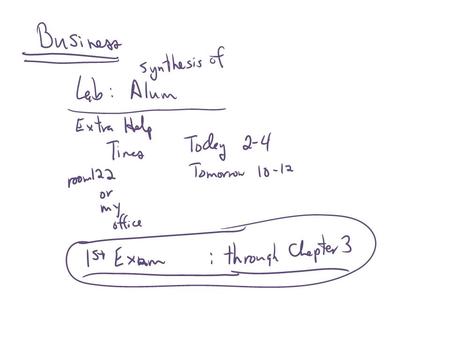 Business
synthesis of
Lab: Alum
Extra Help
Times Today 2-4
room122 Tomorrow 10-12
or
my
office
1st Exam : through Chapter 3